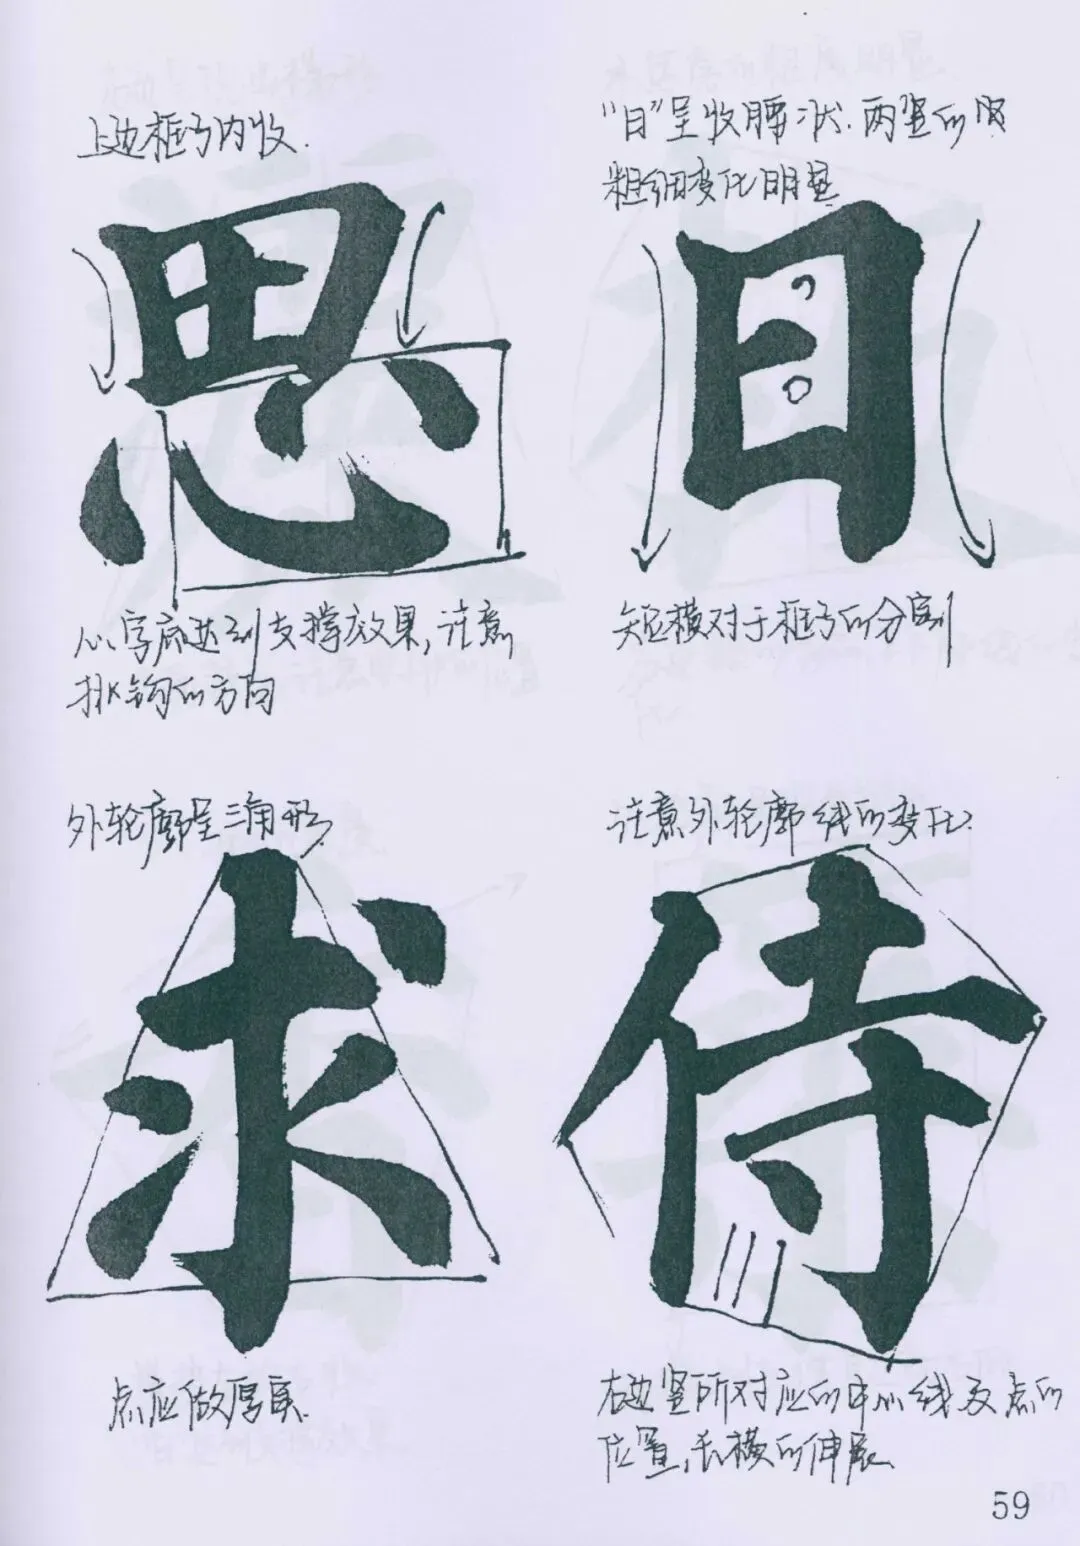 上边框了内收.
思
心字底达到支撑效果,注意
挑钩的方向
"日"呈收腰状.两竖的
粗细变化明显
日
短横对于框了的分割
外轮廓呈三角形
求
点应做厚实.
注意外轮廓线的变化.
侍
右边竖所对应的中心线及点的
位置,长横的伸展
59